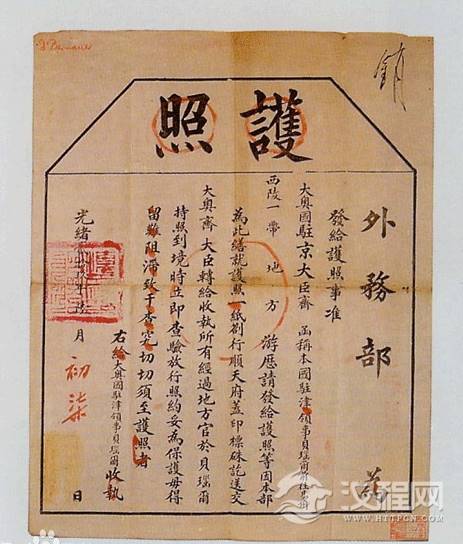 護照
外務部 為
發給護照事准
大奧國駐京大臣齊 函稱本國駐津領事貝瑙爾
西陵一帶地方 游歷請發給護照等因本部
為此繕就護照一紙劄行順天府蓋印標硃訖送交
大奧齊大臣轉給收執所有經過地方官於貝瑙爾
持照到境時立即查驗放行照約妥為保護毋得
留難阻滯致干查究切切須至護照者
右給大奧國駐津領事貝瑙爾收執
光緒 年 月初柒日
銷
汉程网
HTTPCN.COM